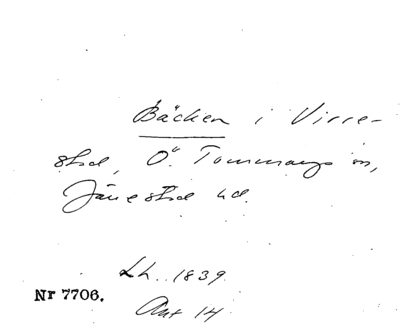 Bäcken i Virre-
stad, Ö. Tommarps sn,
Järrestad hd.
Lh. 1839
Nr 7706.
Akt 14